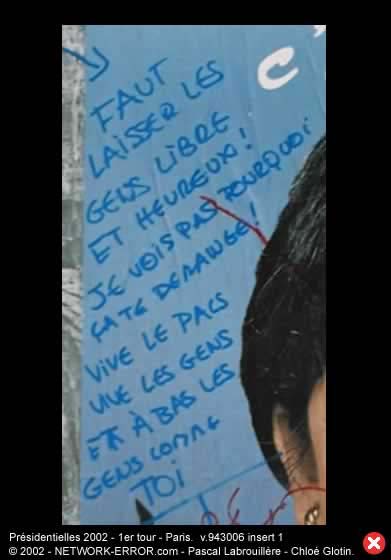 C
FAUT
LAISSER LES
GENS LIBRE
ET HEUREUX!
JE VOIS PAS POURQUOI
ÇA TE DERANGE!
VIVE LE PACS
VIVE LES GENS
ET À BAS LES
GENS COMME
TOI
Présidentielles 2002 - 1er tour - Paris. v.943006 insert 1
© 2002 - NETWORK-ERROR.com - Pascal Labrouillère - Chloé Glotin.